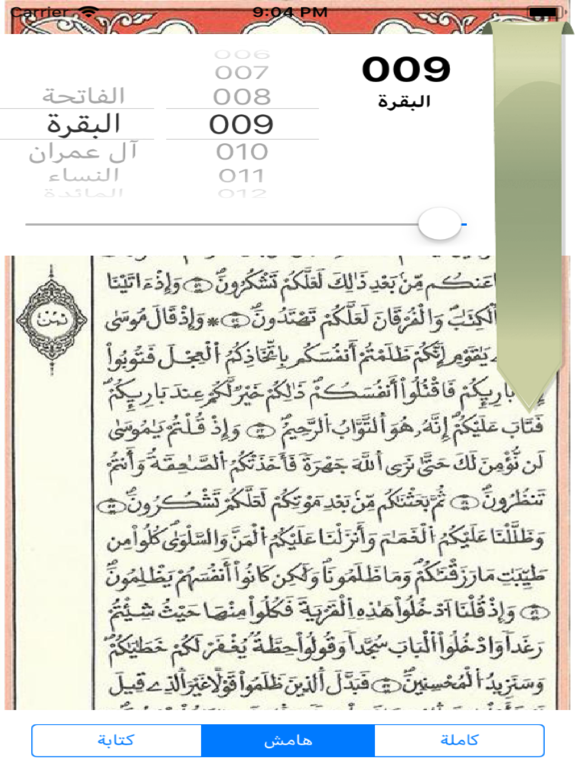 Carrier 9:04 PM
006
007
الفاتحة 008
البقرة 009
آل عمران 010
النساء 011
المائدة 012
009
البقرة
عَنكُم مِّنۢ بَعْدِ ذَٰلِكَ لَعَلَّكُمْ تَشْكُرُونَ وَإِذَ اٰتَيْنَا
اَ۬لْكِتَٰبَ وَالْفُرْقَانَ لَعَلَّكُمْ تَهْتَدُونَ وَإِذْ قَالَ مُوسَىٰ
يَٰقَوْمِ إِنَّكُمْ ظَلَمْتُمُ أَنفُسَكُم بِاتِّخَاذِكُمُ الْعِجْلَ فَتُوبُوا
بَارِئِكُمْ فَاقْتُلُوا أَنفُسَكُمْ ذَٰلِكُمْ خَيْرٌ لَّكُمْ عِندَ بَارِئِكُمْ
فَتَابَ عَلَيْكُمْ إِنَّهُ هُوَ التَّوَّابُ الرَّحِيمُ وَإِذْ قُلْتُمْ يَٰمُوسَىٰ
لَن نُّؤْمِنَ لَكَ حَتَّىٰ نَرَى اللَّهَ جَهْرَةً فَأَخَذَتْكُمُ الصَّٰعِقَةُ وَأَنتُمْ
تَنظُرُونَ ثُمَّ بَعَثْنَٰكُم مِّنۢ بَعْدِ مَوْتِكُمْ لَعَلَّكُمْ تَشْكُرُونَ
وَظَلَّلْنَا عَلَيْكُمُ الْغَمَٰمَ وَأَنزَلْنَا عَلَيْكُمُ الْمَنَّ وَالسَّلْوَىٰ كُلُوا مِن
طَيِّبَٰتِ مَا رَزَقْنَٰكُمْ وَمَا ظَلَمُونَا وَلَٰكِن كَانُوا أَنفُسَهُمْ يَظْلِمُونَ
وَإِذْ قُلْنَا ادْخُلُوا هَٰذِهِ الْقَرْيَةَ فَكُلُوا مِنْهَا حَيْثُ شِئْتُمْ
رَغَدًا وَادْخُلُوا الْبَابَ سُجَّدًا وَقُولُوا حِطَّةٌ يُغْفَرْ لَكُمْ خَطَٰيَٰكُمْ
وَسَنَزِيدُ الْمُحْسِنِينَ فَبَدَّلَ الَّذِينَ ظَلَمُوا قَوْلًا غَيْرَ الَّذِي قِيلَ
ثمن
كتابة هامش كاملة